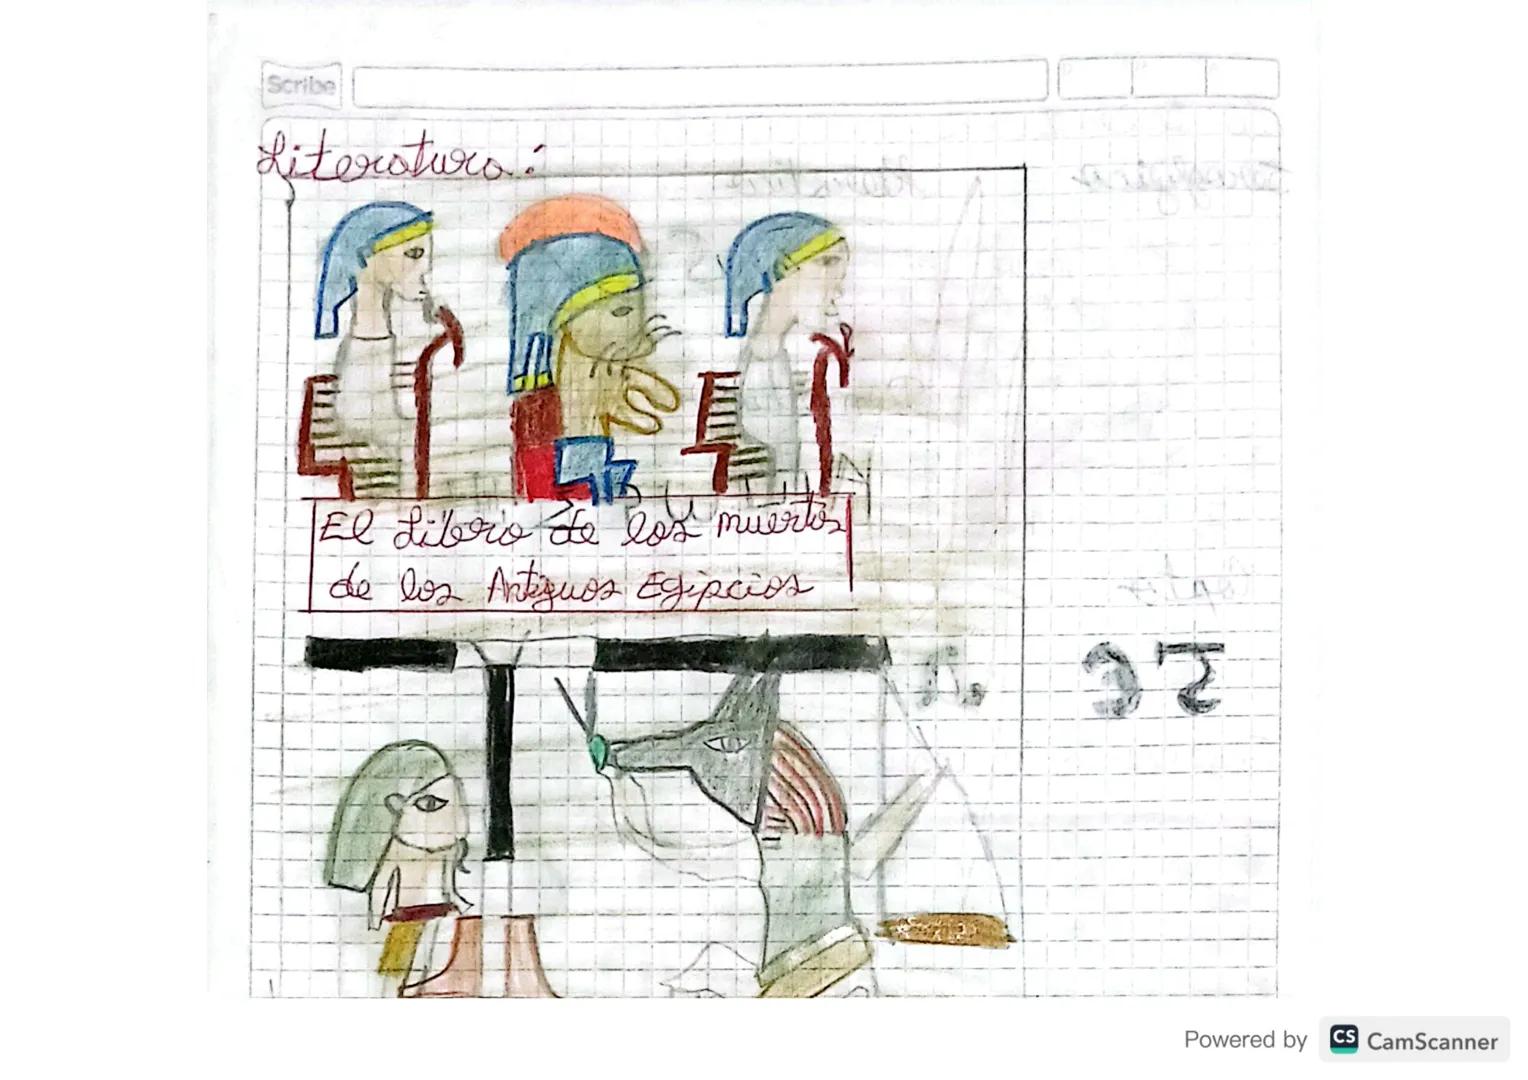 Scribe
Literatura:
El Libro de los muertos
de los Antiguos Egipcios
Powered by
CS CamScanner